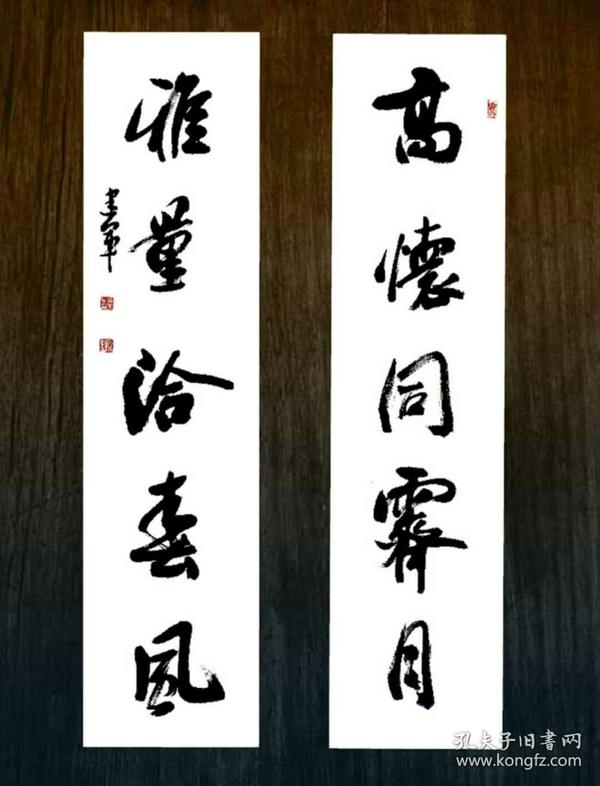 高懷同霽月
雅量洽春風
建軍
孔夫子旧書网
www.kongfz.com